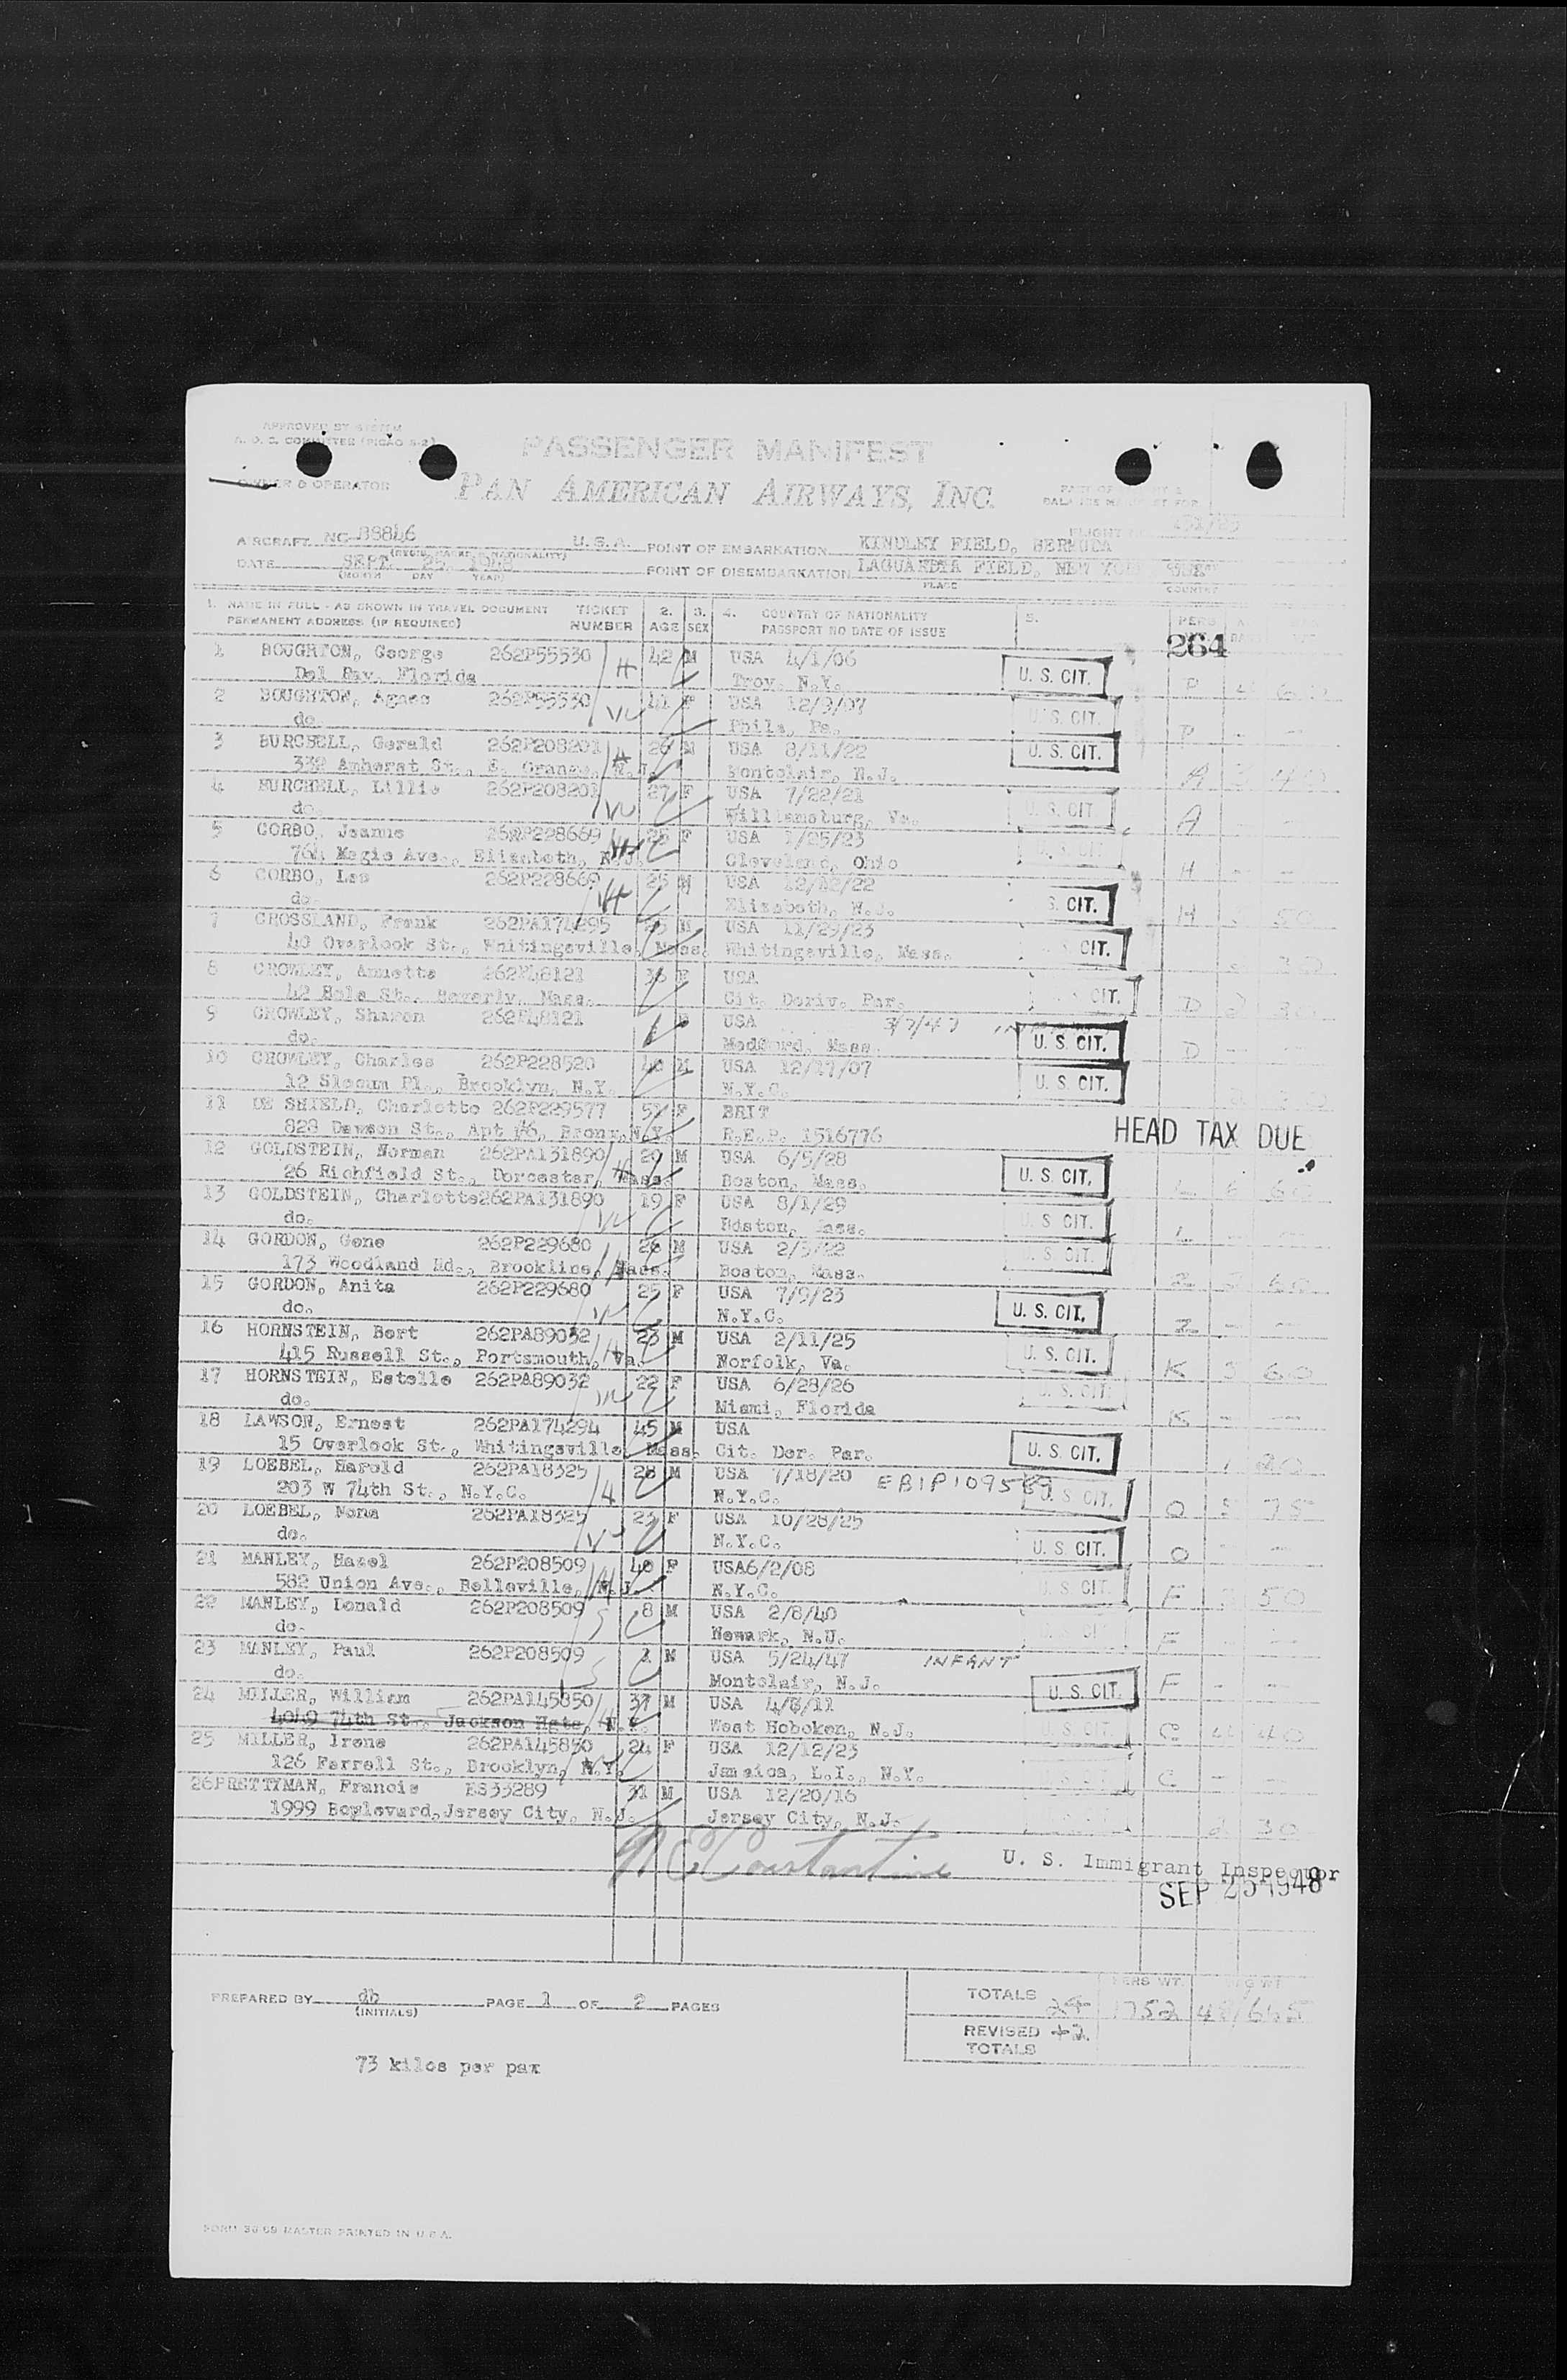 APPROVED BY SYSTEM
A. O. C. COMMITTEE (PICAO 8-2)
PASSENGER MANIFEST
OWNER & OPERATOR
PAN AMERICAN AIRWAYS, INC.
AIRCRAFT NC 88846 U. S. A. POINT OF EMBARKATION KINDLEY FIELD, BERMUDA
FLIGHT NO.
DATE SEPT. 25, 1948 POINT OF DISEMBARKATION LAGUARDIA FIELD, NEW YORK
(MONTH DAY YEAR) PLACE COUNTRY
1. NAME IN FULL - AS SHOWN IN TRAVEL DOCUMENT TICKET 2. 3. 4. COUNTRY OF NATIONALITY 5. PERS
PERMANENT ADDRESS (IF REQUIRED) NUMBER AGE SEX PASSPORT NO DATE OF ISSUE
264
1 BOUGHTON, George 262P55530 H 42 M USA 4/1/06 U. S. CIT.
Del Ray, Florida Troy, N.Y. P 4 60
2 BOUGHTON, Agnes 262P55530 W 41 F USA 12/9/07 U. S. CIT.
do Phila, Pa. P - -
3 BURCHELL, Gerald 262P208201 H 26 M USA 8/11/22 U. S. CIT.
332 Amherst St., E. Orange, N.J. Montclair, N.J. A
4 BURCHELL, Lillie 262P208201 W 27 F USA 7/22/21 U. S. CIT.
do. Williamsburg, Va. A
5 CORBO, Jeanne 262P228669 W 25 F USA 1/25/23 CIT.
764 Magie Ave., Elizabeth, N.J. Cleveland, Ohio H - -
6 CORBO, Les 262P228669 H 25 M USA 12/12/22 S. CIT.
do. Elizabeth, N.J. H 50
7 CROSSLAND, Frank 262PA174295 M USA 11/29/23 CIT.
40 Overlook St., Whitingsville, Mass. Whitingsville, Mass.
8 CROWLEY, Annette 262P48121 36 F USA CIT.
42 Hale St., Beverly, Mass. Cit. Deriv. Par. D 2 30
9 CROWLEY, Sharon 262P48121 F USA 3/7/47 INFANT
do. Medford, Mass. U. S. CIT. D - -
10 CROWLEY, Charles 262P228520 40 M USA 12/17/07 U. S. CIT.
12 Slocum Pl., Brooklyn, N.Y. N.Y.C.
11 DE SHIELD, Charlotte 262P229577 F BRIT
828 Dawson St., Apt 46, Bronx, N.Y. R.E.P. 1516776 HEAD TAX DUE
12 GOLDSTEIN, Norman 262PA131890 H 20 M USA 6/5/28 U. S. CIT.
26 Richfield St., Dorcester, Mass. Boston, Mass. L 60
13 GOLDSTEIN, Charlotte 262PA131890 W 19 F USA 8/1/29 U. S. CIT.
do. Boston, Mass. L - -
14 GORDON, Gene 262P229680 H 26 M USA 2/5/22 U. S. CIT.
173 Woodland Rd., Brookline, Mass. Boston, Mass. Z 60
15 GORDON, Anita 262P229680 W 25 F USA 7/9/23 U. S. CIT.
do. N.Y.C. Z - -
16 HORNSTEIN, Bert 262PA89032 H 23 M USA 2/11/25 U. S. CIT.
415 Russell St., Portsmouth, Va. Norfolk, Va. K 3 60
17 HORNSTEIN, Estelle 262PA89032 W 22 F USA 6/28/26 U. S. CIT.
do. Miami, Florida K - -
18 LAWSON, Ernest 262PA174294 45 M USA U. S. CIT.
15 Overlook St., Whitingsville, Mass. Cit. Der. Par.
19 LOEBEL, Harold 262PA18325 H 28 M USA 7/18/20 U. S. CIT.
203 W 74th St., N.Y.C. N.Y.C. O 75
20 LOEBEL, Nona 262PA18325 W 23 F USA 10/28/25 U. S. CIT.
do. N.Y.C. O - -
21 MANLEY, Hazel 262P208509 40 F USA6/2/08 U. S. CIT.
582 Union Ave., Belleville, N.J. N.Y.C. F 50
22 MANLEY, Donald 262P208509 S 8 M USA 2/8/40
do. Newark, N.J. F - -
23 MANLEY, Paul 262P208509 S 1 M USA 5/24/47 INFANT
do. Montclair, N.J. U. S. CIT. F - -
24 MILLER, William 262PA145850 H 37 M USA 4/8/11 U. S. CIT.
4049 74th St., Jackson Hgts, N.Y. West Hoboken, N.J. C 40
25 MILLER, Irene 262PA145850 24 F USA 12/12/23
126 Ferrell St., Brooklyn, N.Y. Jamaica, L.I., N.Y. C - -
26 PRETTYMAN, Francis ES33289 31 M USA 12/20/16
1999 Boylevard, Jersey City, N.J. Jersey City, N.J. 2 30
U. S. Immigrant Inspector
SEP 25 1948
PREPARED BY db PAGE 1 OF 2 PAGES
(INITIALS)
TOTALS 24 1752
PERS WT.
REVISED +2
TOTALS
73 kilos per pax